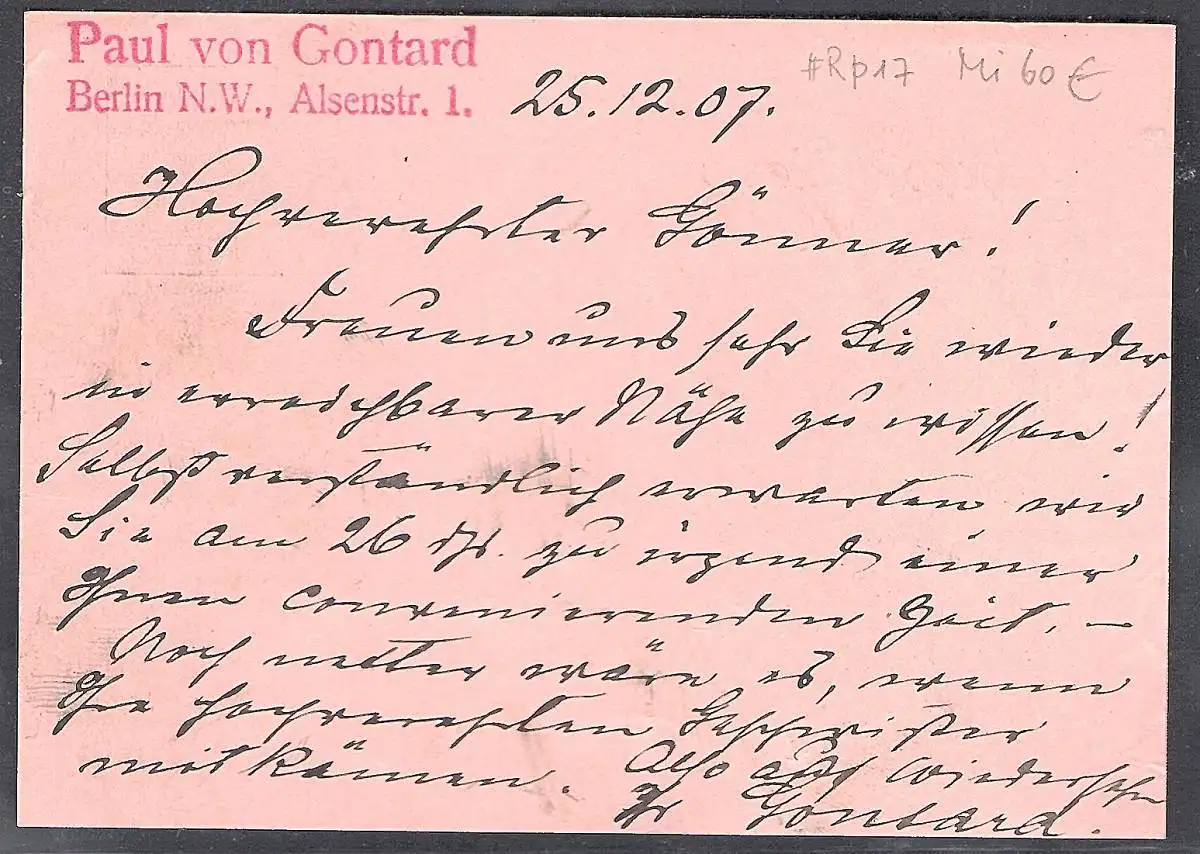 Paul von Gontard
Berlin N.W., Alsenstr. 1.
#Rp17 Mi 60 €
25.12.07.
Hochverehrter Gönner!
Freuen uns sehr Sie wieder
in erreichbarer Nähe zu wissen!
Selbstverständlich erwarten wir
Sie am 26 ds. zu irgend einer
Ihnen convenierenden Zeit. —
Noch netter wäre es, wenn
Ihre hochverehrten Geschwister
mitkämen. Also auf Wiedersehn
Ihr Gontard.